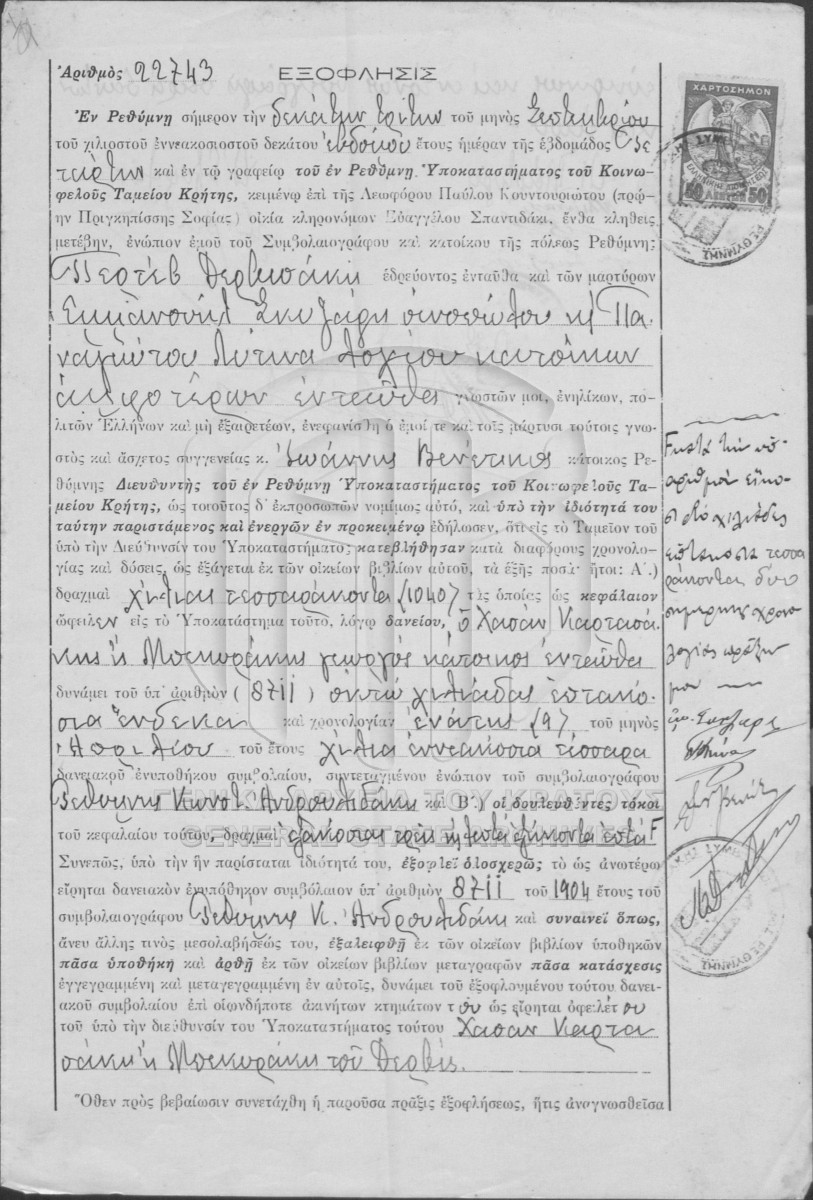 Ἀριθμὸς 22743 ΕΞΟΦΛΗΣΙΣ
ΧΑΡΤΟΣΗΜΟΝ
50 ΛΕΠΤΑ 50
Ἐν Ρεθύμνῃ σήμερον τὴν δεκάτην τρίτην τοῦ μηνὸς Σεπτεμβρίου
τοῦ χιλιοστοῦ ἐννεακοσιοστοῦ δεκάτου ἑβδόμου ἔτους ἡμέραν τῆς ἑβδομάδος Τε
τάρτην καὶ ἐν τῷ γραφείῳ τοῦ ἐν Ρεθύμνῃ Ὑποκαταστήματος τοῦ Κοινω-
φελοῦς Ταμείου Κρήτης, κειμένῳ ἐπὶ τῆς Λεωφόρου Παύλου Κουντουριώτου (πρώ-
ην Πριγκηπίσσης Σοφίας) οἰκίᾳ κληρονόμων Εὐαγγέλου Σπαντιδάκι, ἔνθα κληθεὶς
μετέβην, ἐνώπιον ἐμοῦ τοῦ Συμβολαιογράφου καὶ κατοίκου τῆς πόλεως Ρεθύμνης
Περτὲβ Δερβισάκη ἑδρεύοντος ἐνταῦθα καὶ τῶν μαρτύρων
Ἐμμανουὴλ Σκυζάρη οἰνοπώλου κ Πα
ναγιώτου κατοίκων
ἀμφοτέρων ἐνταῦθα γνωστῶν μοι, ἐνηλίκων, πο-
λιτῶν Ἑλλήνων καὶ μὴ ἐξαιρετέων, ἐνεφανίσθη ὁ ἐμοί τε καὶ τοῖς μάρτυσι τούτοις γνω-
στὸς καὶ ἄσχετος συγγενείας κ. Ἰωάννης Βενέτικος κάτοικος Ρε-
θύμνης Διευθυντὴς τοῦ ἐν Ρεθύμνῃ Ὑποκαταστήματος τοῦ Κοινωφελοῦς Τα-
μείου Κρήτης, ὡς τοιοῦτος δ' ἐκπροσωπῶν νομίμως αὐτό, καὶ ὑπὸ τὴν ἰδιότητά του
ταύτην παριστάμενος καὶ ἐνεργῶν ἐν προκειμένῳ ἐδήλωσεν, ὅτι εἰς τὸ Ταμεῖον τοῦ
ὑπὸ τὴν Διεύθυνσίν του Ὑποκαταστήματος κατεβλήθησαν κατὰ διαφόρους χρονολο-
γίας καὶ δόσεις, ὡς ἐξάγεται ἐκ τῶν οἰκείων βιβλίων αὐτοῦ, τὰ ἑξῆς ποσὰ ἤτοι: Α΄.)
δραχμαὶ χίλιαι τεσσαράκοντα (1040) τὰς ὁποίας ὡς κεφάλαιον
ὤφειλεν εἰς τὸ Ὑποκατάστημα τοῦτο, λόγῳ δανείου, ὁ Χασὰν Καρτασά
κης ἢ Μπεκυράκης γεωργὸς κάτοικος ἐνταῦθα
δυνάμει τοῦ ὑπ' ἀριθμὸν (8711) ὀκτὼ χιλιάδας ἑπτακό-
σια ἕνδεκα καὶ χρονολογίαν ἐνάτης (9) τοῦ μηνὸς
Ἀπριλίου τοῦ ἔτους χίλια ἐννεακόσια τέσσαρα
δανειακοῦ ἐνυποθήκου συμβολαίου, συντεταγμένου ἐνώπιον τοῦ συμβολαιογράφου
Ρεθύμνης Κωνστ. Ἀνδρουλιδάκη καὶ Β΄.) οἱ δουλευθέντες τόκοι
τοῦ κεφαλαίου τούτου, δραχμαὶ ἑξακόσιαι τρεῖς κ λεπτὰ ἑξήκοντα ἑπτὰ
Συνεπῶς, ὑπὸ τὴν ἣν παρίσταται ἰδιότητά του, ἐξοφλεῖ ὁλοσχερῶς τὸ ὡς ἀνωτέρω
εἴρηται δανειακὸν ἐνυπόθηκον συμβόλαιον ὑπ' ἀριθμὸν 8711 τοῦ 1904 ἔτους τοῦ
συμβολαιογράφου Ρεθύμνης Κ. Ἀνδρουλιδάκη καὶ συναινεῖ ὅπως,
ἄνευ ἄλλης τινὸς μεσολαβήσεώς του, ἐξαλειφθῇ ἐκ τῶν οἰκείων βιβλίων ὑποθηκῶν
πᾶσα ὑποθήκη καὶ ἀρθῇ ἐκ τῶν οἰκείων βιβλίων μεταγραφῶν πᾶσα κατάσχεσις
ἐγγεγραμμένη καὶ μεταγεγραμμένη ἐν αὐτοῖς, δυνάμει τοῦ ἐξοφλουμένου τούτου δανει-
ακοῦ συμβολαίου ἐπὶ οἱωνδήποτε ἀκινήτων κτημάτων τοῦ ὡς εἴρηται ὀφειλέτου
τοῦ ὑπὸ τὴν διεύθυνσίν του Ὑποκαταστήματος τούτου Χασὰν Καρτα
σάκη ἢ Μπεκυράκη τοῦ Δερβὶς.
Ὅθεν πρὸς βεβαίωσιν συνετάχθη ἡ παροῦσα πρᾶξις ἐξοφλήσεως, ἥτις ἀναγνωσθεῖσα
Μετὰ τὴν ὑπ'
ἀριθμὸν εἴκο
σι δύο χιλιάδες
ἑπτακόσια τεσσα
ράκοντα δύο
σημερινῆς χρονο
λογίας πρᾶξιν
μου
ΓΕΝΙΚΑ ΑΡΧΕΙΑ ΤΟΥ ΚΡΑΤΟΥΣ
GENERAL STATE ARCHIVES